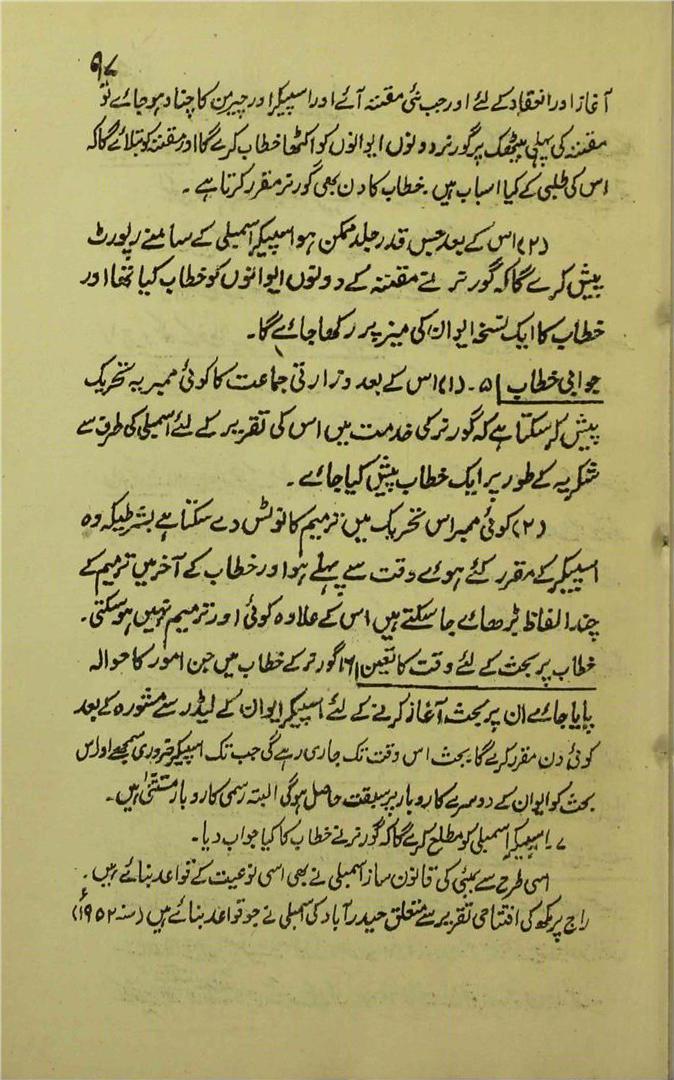 ۹۷
آغاز اور انعقاد کے لئے اور جب نئی مقننہ آئے اور اسپیکر اور چیرمن کا چناو ہو جائے تو
مقننہ کی پہلی بیٹھک پر گورنر دونوں ایوانوں کو اکٹھا خطاب کرے گا اور مقننہ کو بتلائے گا کہ
اس کی طلبی کے کیا اسباب ہیں۔ خطاب کا دن بھی گورنر مقرر کرتا ہے۔
(۲) اس کے بعد جس قدر جلد ممکن ہو اسپیکر اسمبلی کے سامنے رپورٹ
پیش کرے گا کہ گورنر نے مقننہ کے دونوں ایوانوں کو خطاب کیا تھا اور
خطاب کا ایک نسخہ ایوان کی میز پر رکھا جائے گا۔
جوابی خطاب | ۵۔ (۱) اس کے بعد وزارتی جماعت کا کوئی ممبر یہ تحریک
پیش کر سکتا ہے کہ گورنر کی خدمت میں اس کی تقریر کے لئے اسمبلی کی طرف سے
شکریہ کے طور پر ایک خطاب پیش کیا جائے۔
(۲) کوئی ممبر اس تحریک میں ترمیم کا نوٹس دے سکتا ہے بشرطیکہ وہ
اسپیکر کے مقرر کئے ہوئے وقت سے پہلے ہو اور خطاب کے آخر میں ترمیم کے
چند الفاظ بڑھائے جا سکتے ہیں اس کے علاوہ کوئی اور ترمیم نہیں ہو سکتی۔
خطاب پر بحث کے لئے وقت کا تعین | ۶ا گورنر کے خطاب میں جن امور کا حوالہ
پایا جائے ان پر بحث آغاز کرنے کے لئے اسپیکر ایوان کے لیڈر سے مشورہ کے بعد
کوئی دن مقرر کرے گا۔ بحث اس وقت تک جاری رہے گی جب تک اسپیکر ضروری سمجھے اور اس
بحث کو ایوان کے دوسرے کاروبار پر سبقت حاصل ہوگی البتہ رسمی کاروبار مستثنیٰ ہیں۔
۷۔ اسپیکر اسمبلی کو مطلع کرے گا کہ گورنر نے خطاب کا کیا جواب دیا۔
اسی طرح سے بمبئی کی قانون ساز اسمبلی نے بھی اسی نوعیت کے قواعد بنائے ہیں۔
راج پرمکھ کی افتتاحی تقریر سے متعلق حیدرآباد کی اسمبلی نے جو قواعد بنائے ہیں (سنہ ۱۹۵۲ء)